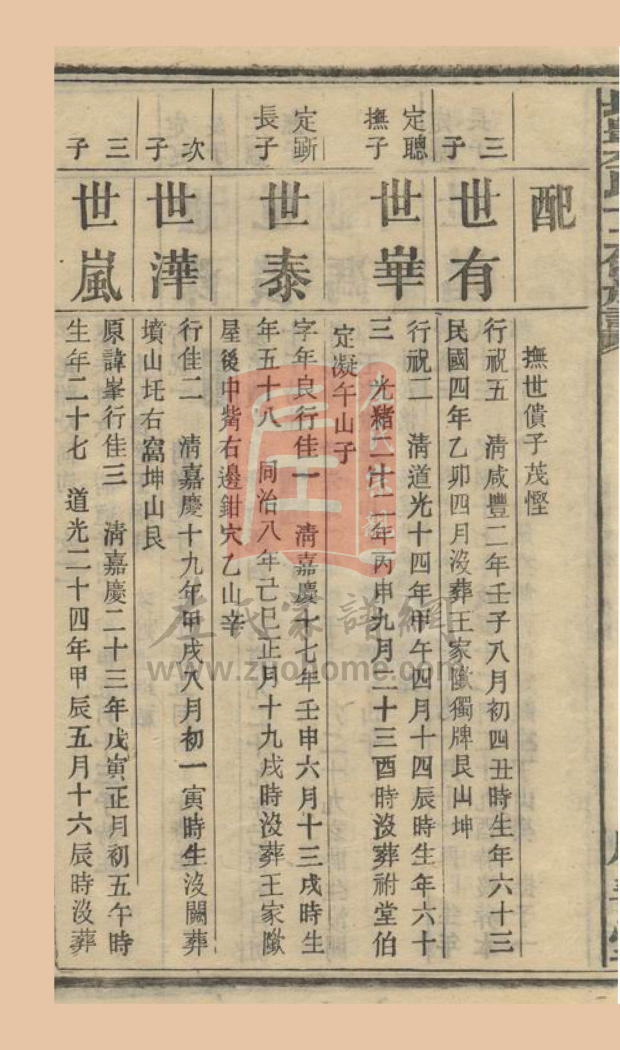 配
撫世僙子茂慳
三子
世有
行祝五 清咸豐二年壬子八月初四丑時生年六十三
民國四年乙卯四月沒葬王家隞獨牌艮山坤
定聰撫子
世華
行祝二 清道光十四年甲午四月十四辰時生年六十
三 光緒二十二年丙申九月二十三酉時沒葬祔堂伯
定凝午山子
定斷長子
世泰
字年良行佳一 清嘉慶十七年壬申六月十三戌時生
年五十八 同治八年己巳正月十九戌時沒葬王家隞
屋後中觜右邊鉗穴乙山辛
次子
世澕
行佳二 清嘉慶十九年甲戌八月初一寅時生沒闕葬
墳山圫右窩坤山艮
三子
世嵐
原諱峯行佳三 清嘉慶二十三年戊寅正月初五午時
生年二十七 道光二十四年甲辰五月十六辰時沒葬
左氏宗譜網
www.zuohome.com